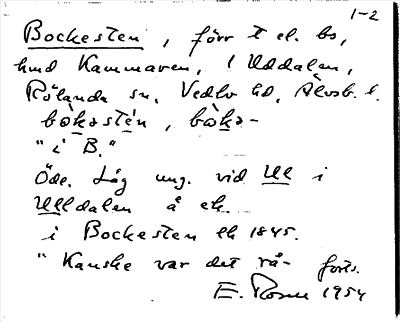 1-2
Bockesten, förr t el. bs,
hmd Kammaren, i Uddalen,
Rölanda sn, Vedbo hd, Älvsb. l.
bòkəstén, bòkə-
"i B."
Öde. Låg ung. vid Ull i
Ulldalen å ek.
i Bockesten lh 1845.
"Kanske var det rå- forts.
E. 1954